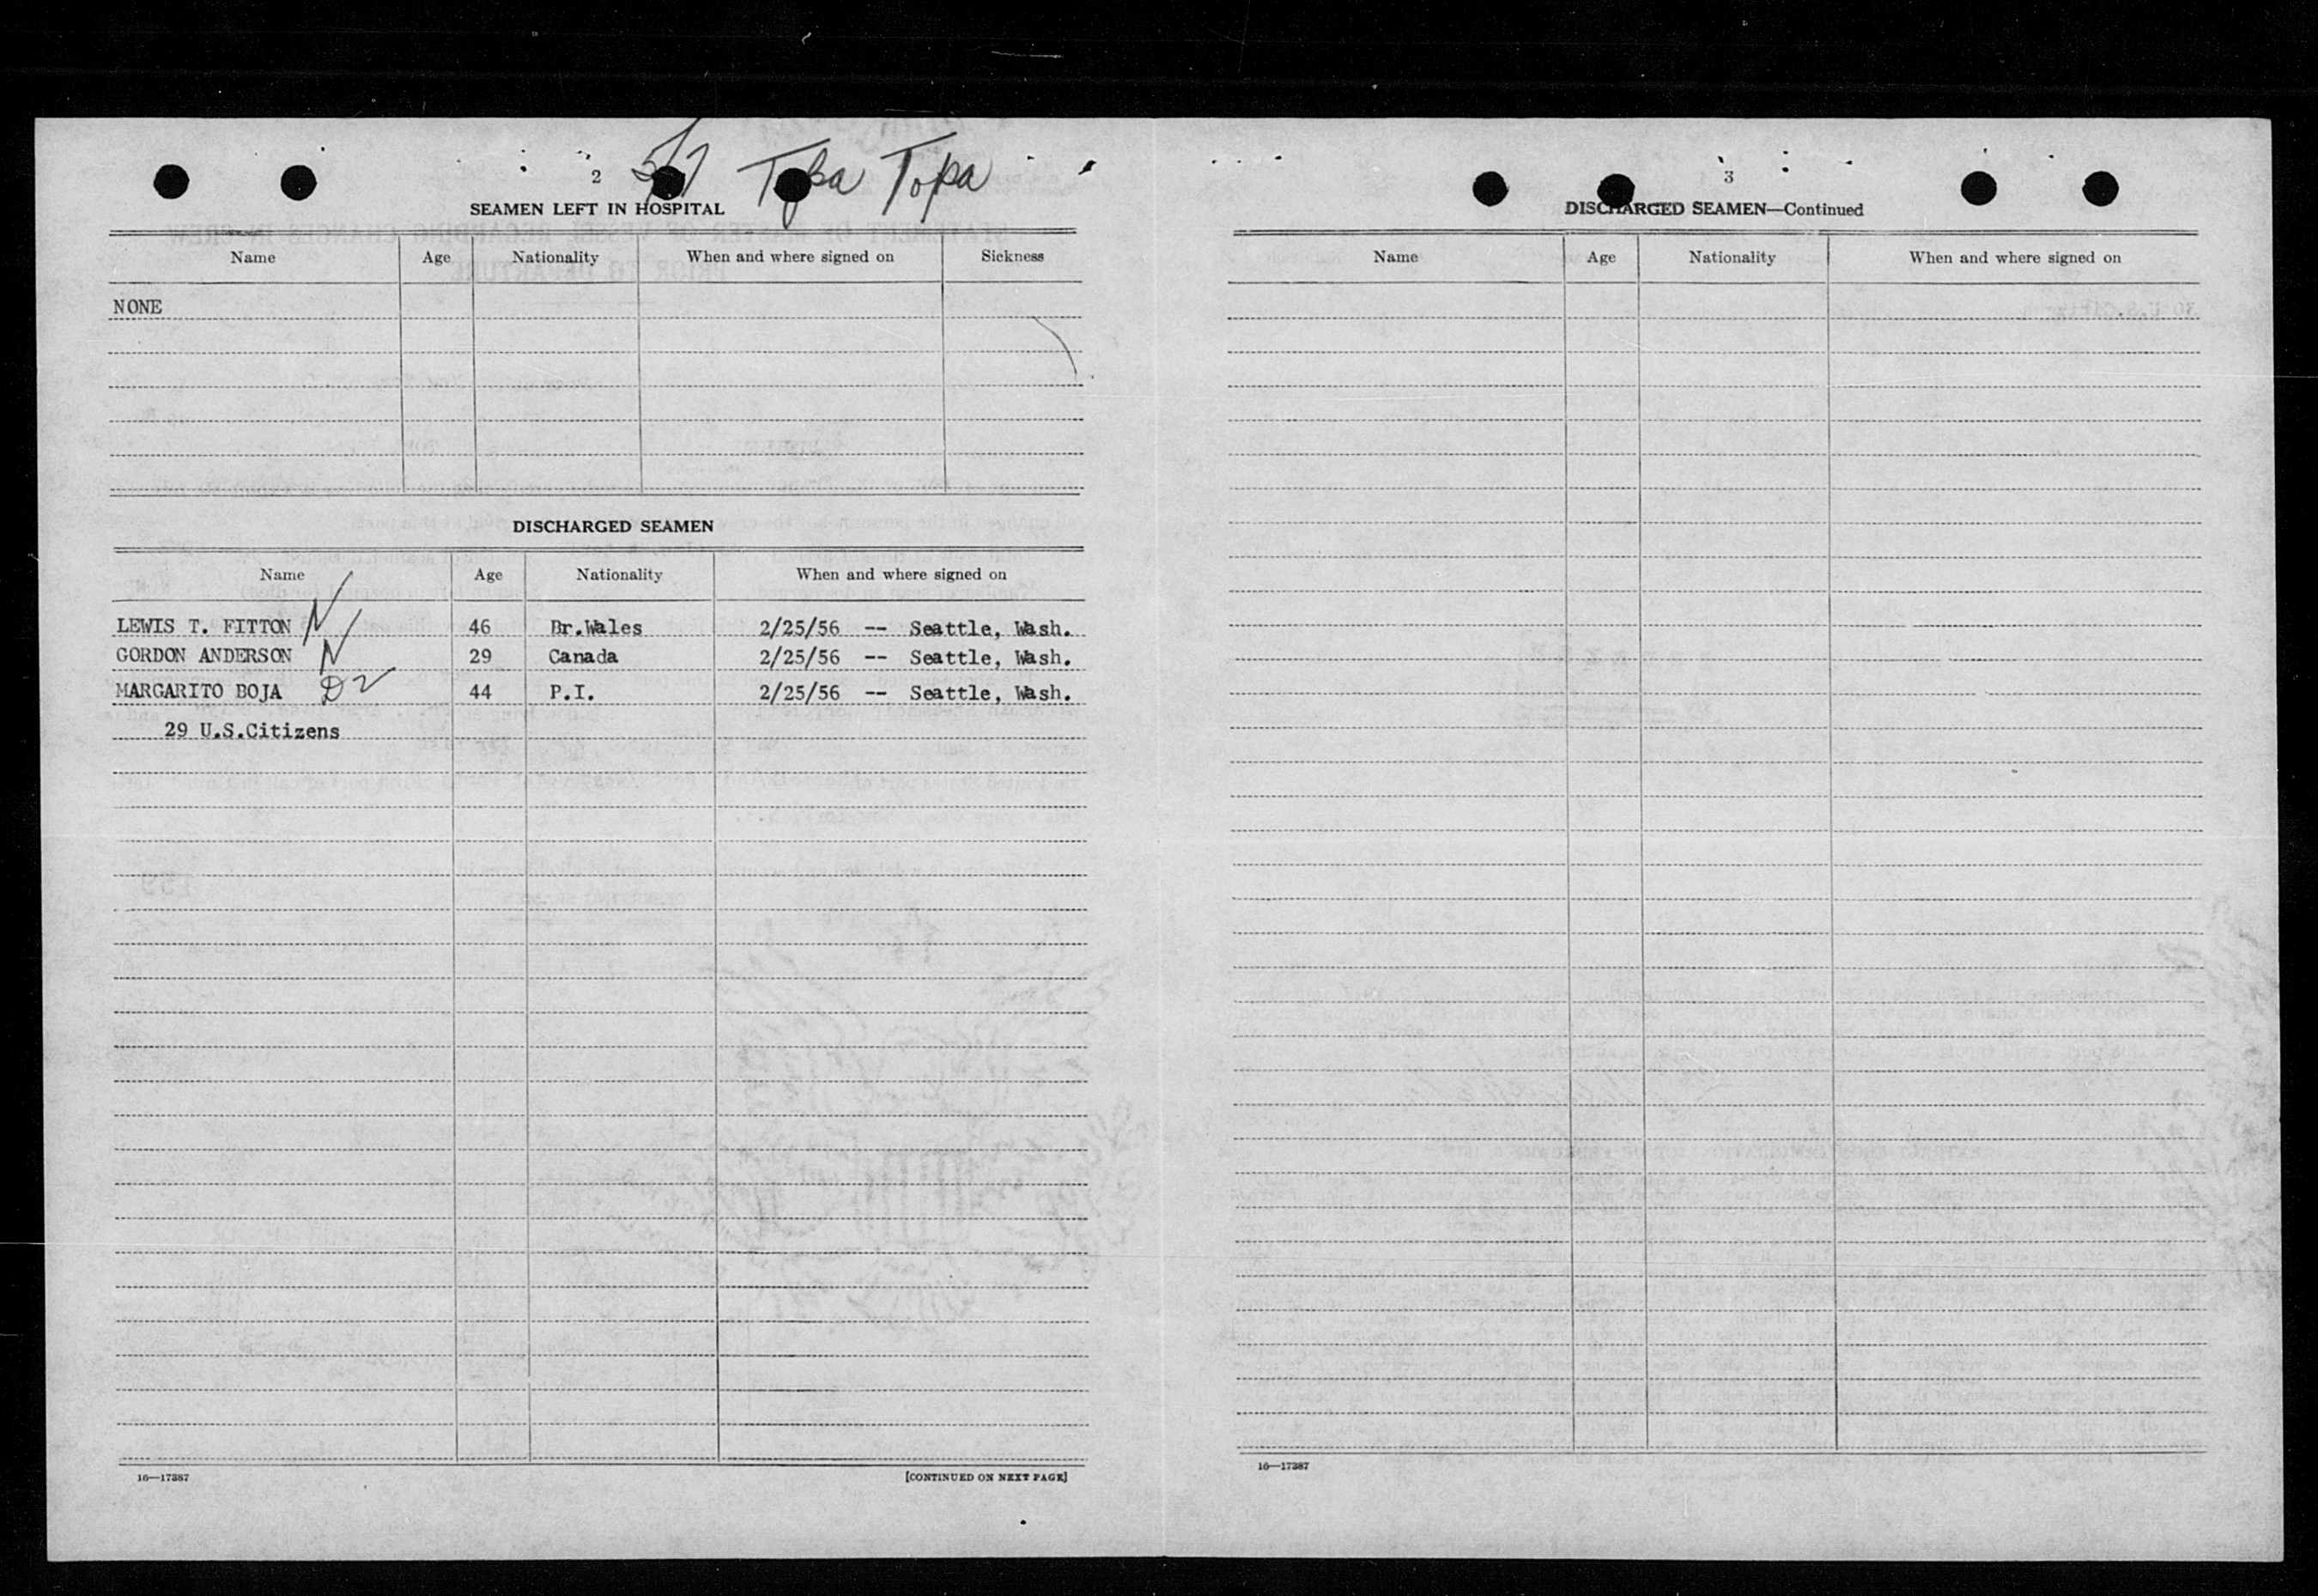 2
Topa Topa
SEAMEN LEFT IN HOSPITAL
Name Age Nationality When and where signed on Sickness
NONE
DISCHARGED SEAMEN
Name Age Nationality When and where signed on
LEWIS T. FITTON N 46 Br.Wales 2/25/56 -- Seattle, Wash.
GORDON ANDERSON N 29 Canada 2/25/56 -- Seattle, Wash.
MARGARITO BOJA D2 44 P.I. 2/25/56 -- Seattle, Wash.
29 U.S.Citizens
16—17387 [CONTINUED ON NEXT PAGE]
3
DISCHARGED SEAMEN—Continued
Name Age Nationality When and where signed on
16—17387